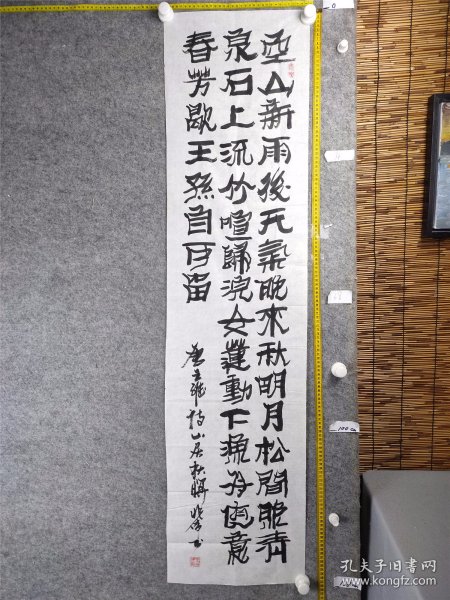 空山新雨後天氣晚來秋明月松間照清
泉石上流竹喧歸浣女蓮動下漁舟隨意
春芳歇王孫自可留
唐王維詩山居秋暝 書
0
100cm
孔夫子旧书网
www.kongfz.com